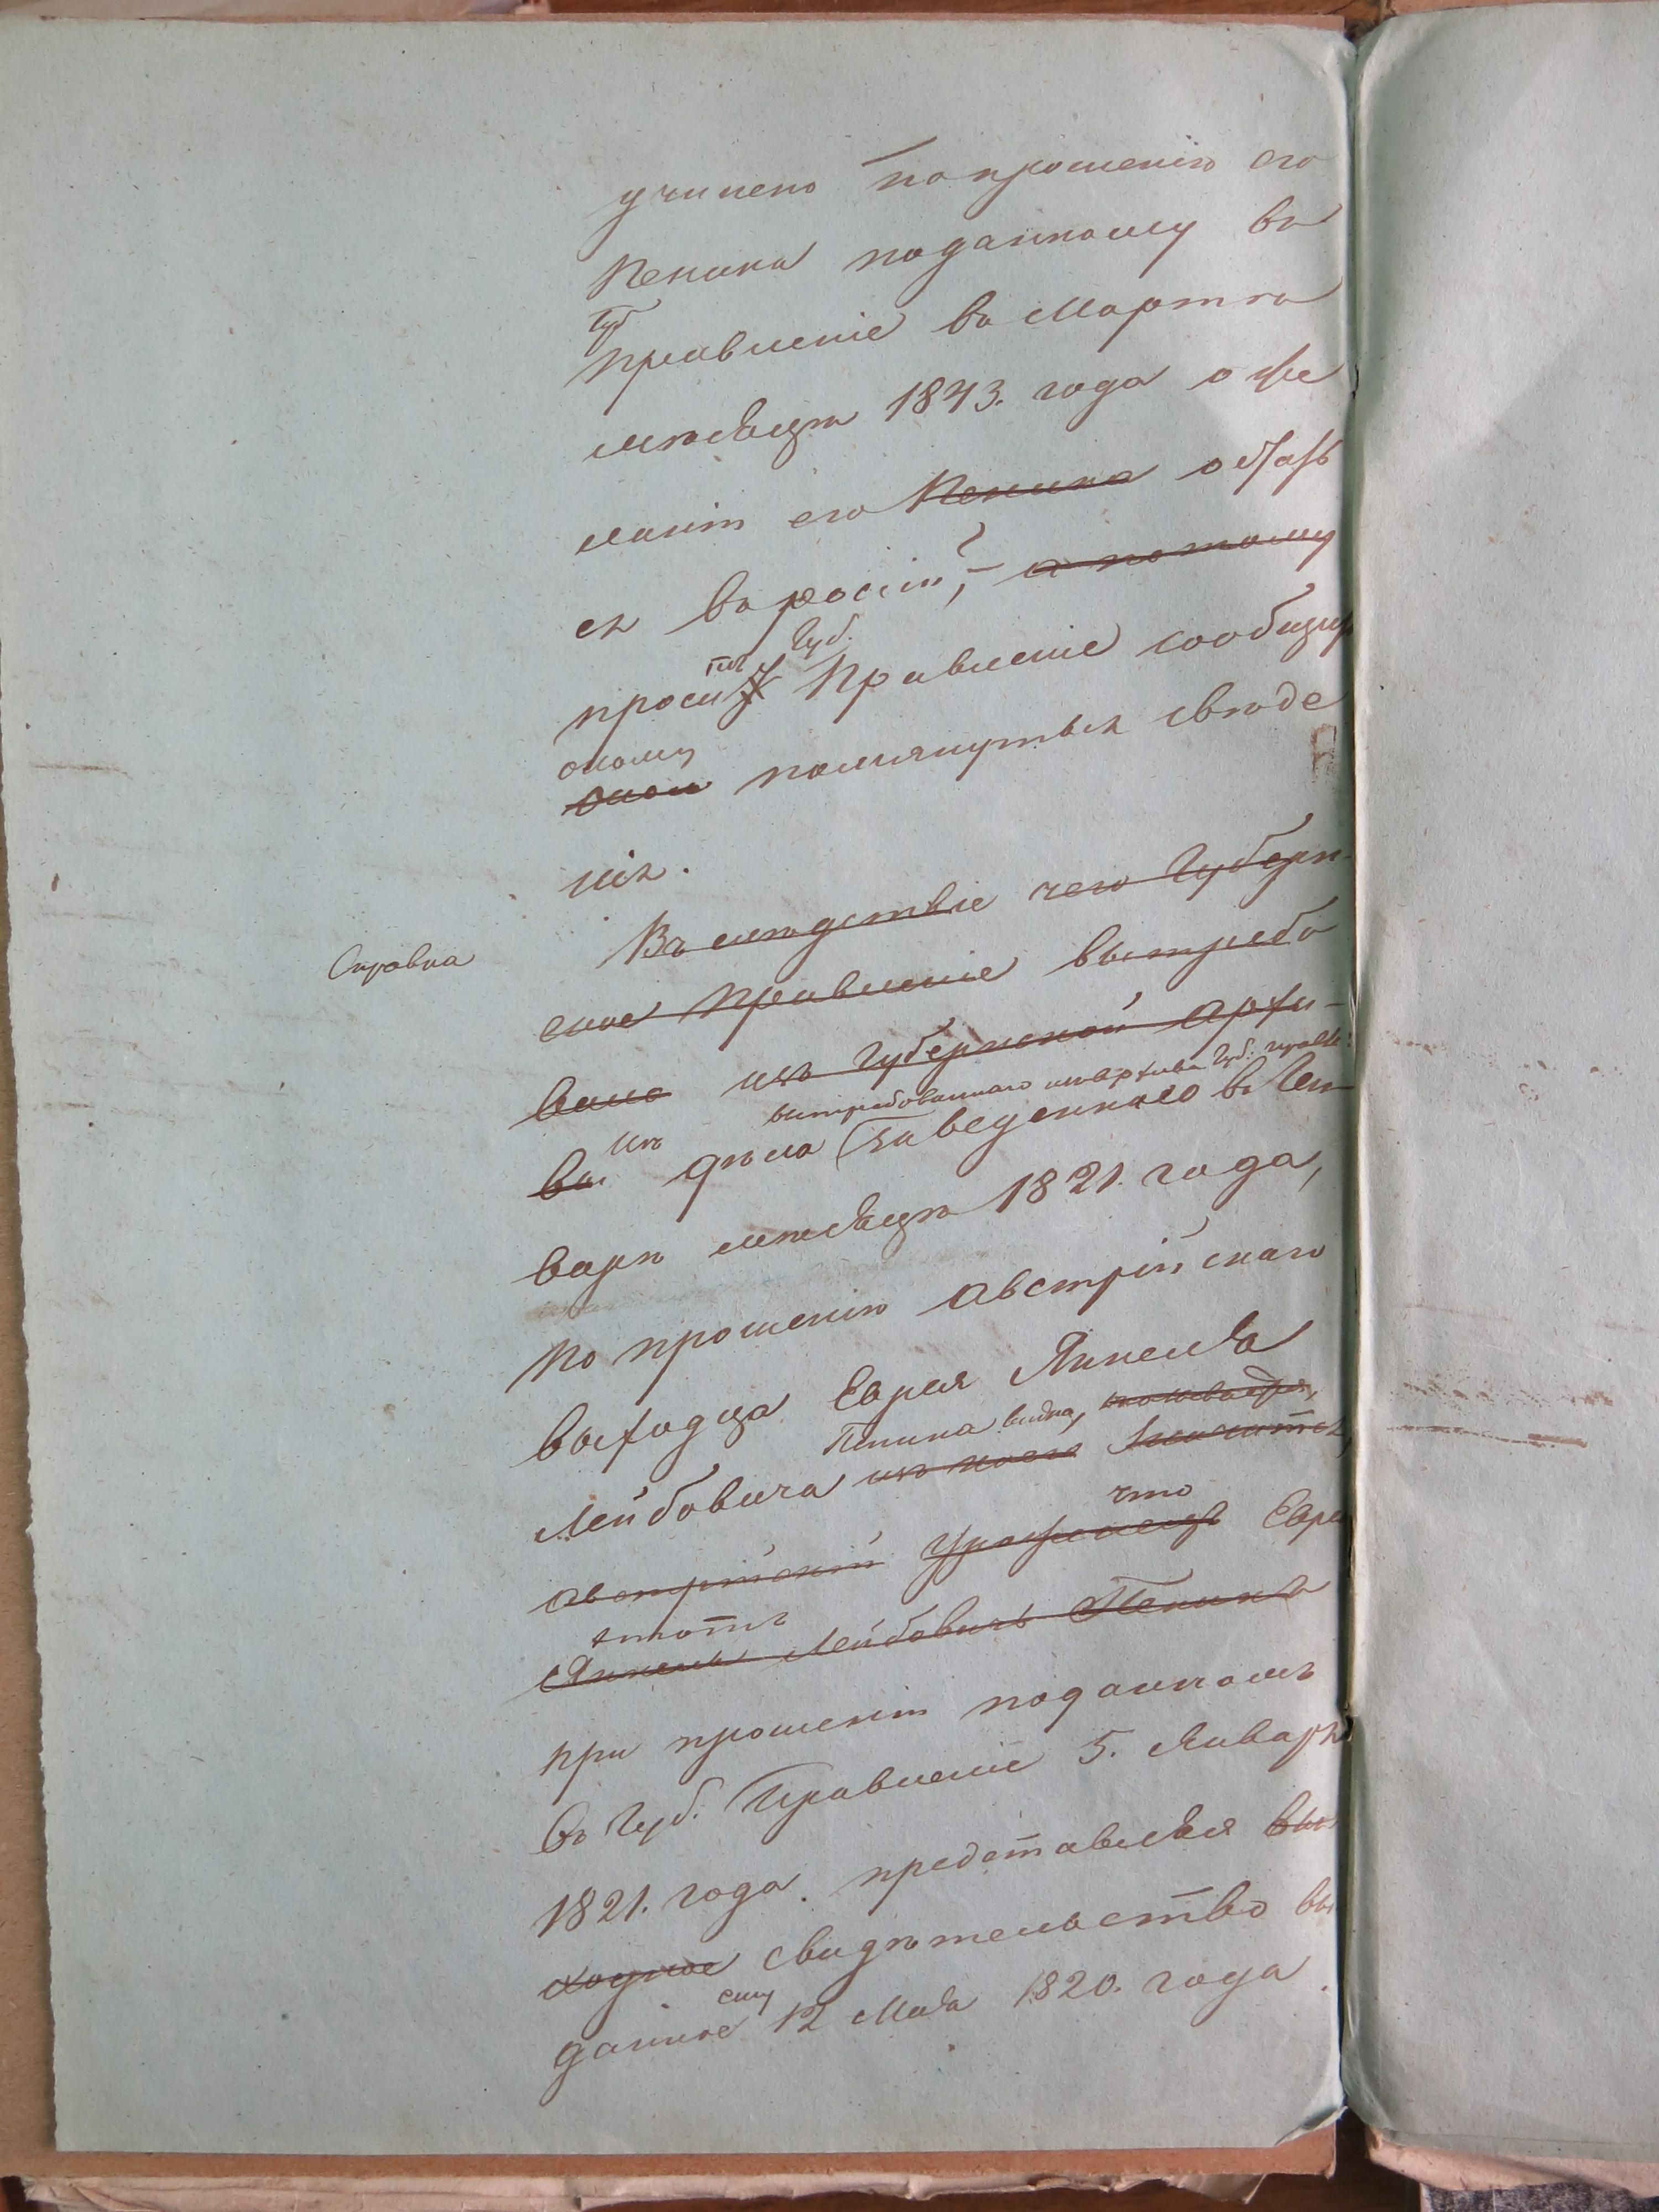 учинено по прошенію его
Пенина поданному въ
Губ
Правленіе въ Мартѣ
мѣсяцѣ 1843. года о же
ланіи его Пенина остать
ся въ россіи, – а потому
проситъ Губ. Правленіе сообщить
оному
оной помянутыя свѣде
нія.
Справка
Въ слѣдствіе чего Губерн-
ское Правленіе вытребо
вало изъ Губернской Архи-
вытребованнаго изъ Архива Губ: правл:
вы изъ дѣла заведеннаго въ Ген-
варѣ мѣсяцѣ 1821. года,
по прошенію Австрійскаго
выходца Еврея Янкеля
Пенина видно,
Лейбовича изъ коего значится,
что
Австрійскій Уроженецъ Еврей
этотъ
Янкель Лейбовичъ Пенинъ
при прошеніи поданномъ
въ Губ. Правленіе 5. Января
1821. года. представляя вы
ходное свидѣтельство вы
данное ему 12 Мая 1820. года.